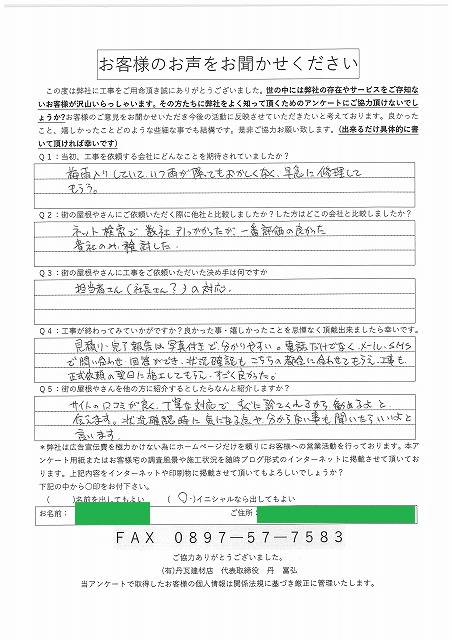 お客様のお声をお聞かせください
この度は弊社に工事をご用命頂き誠にありがとうございました。世の中には弊社の存在やサービスをご存知な
いお客様が沢山いらっしゃいます。その方たちに弊社をよく知って頂くためのアンケートにご協力頂けないでし
ょうか?お客様のご意見をお聞かせいただき今後の活動に反映させていただきたいと考えております。良かった
こと、嬉しかったことどのような些細な事でも結構です。是非ご協力お願い致します。(出来るだけ具体的に書
いて頂ければ幸いです)
Q1:当初、工事を依頼する会社にどんなことを期待されていましたか?
梅雨入りしていて、いつ雨が降ってもおかしくなく、早急に修理して
もらう。
Q2:街の屋根やさんにご依頼いただく際に他社と比較しましたか?した方はどこの会社と比較しましたか?
ネット検索で数社引っかかったが、一番評価の良かった
貴社のみ検討した.
Q3:街の屋根やさんに工事をご依頼いただいた決め手は何ですか
担当者さん(社長さん?)の対応.
Q4:工事が終わってみていかがですか?良かった事・嬉しかったことを忌憚なく頂戴出来ましたら幸いです。
見積り・完了報告は写真付きで、分かりやすい。電話だけでなく、メール、SMS
で問い合わせ・回答ができ、状況確認もこちらの都合に合わせてもらえ、工事も
正式依頼の翌日に施工してもらえ、すごく良かった。
Q5:街の屋根やさんを他の方に紹介するとしたらなんと紹介しますか?
サイトの口コミが良く、丁寧な対応で、すぐに診てくれるから勧めるよと
伝えます。状況確認時に気になる点や分からない事も聞いたらいいよと
言います.
*弊社は広告宣伝費を極力かけない為にホームページだけを頼りにお客様への営業活動を行っております。本ア
ンケート用紙またはお客様宅の調査風景や施工状況を随時ブログ形式のインターネットに掲載させて頂いてお
ります。上記内容をインターネットや印刷物に掲載させて頂いてもよろしいでしょうか?
下記の中から〇印をお付下さい。
( )名前を出してもよい ( 〇 )イニシャルなら出してもよい
お名前: ご住所:
FAX 0897-57-7583
ご協力ありがとうございました。
(有)丹瓦建材店 代表取締役 丹 富弘
当アンケートで取得したお客様の個人情報は関係法規に基づき厳正に管理いたします。